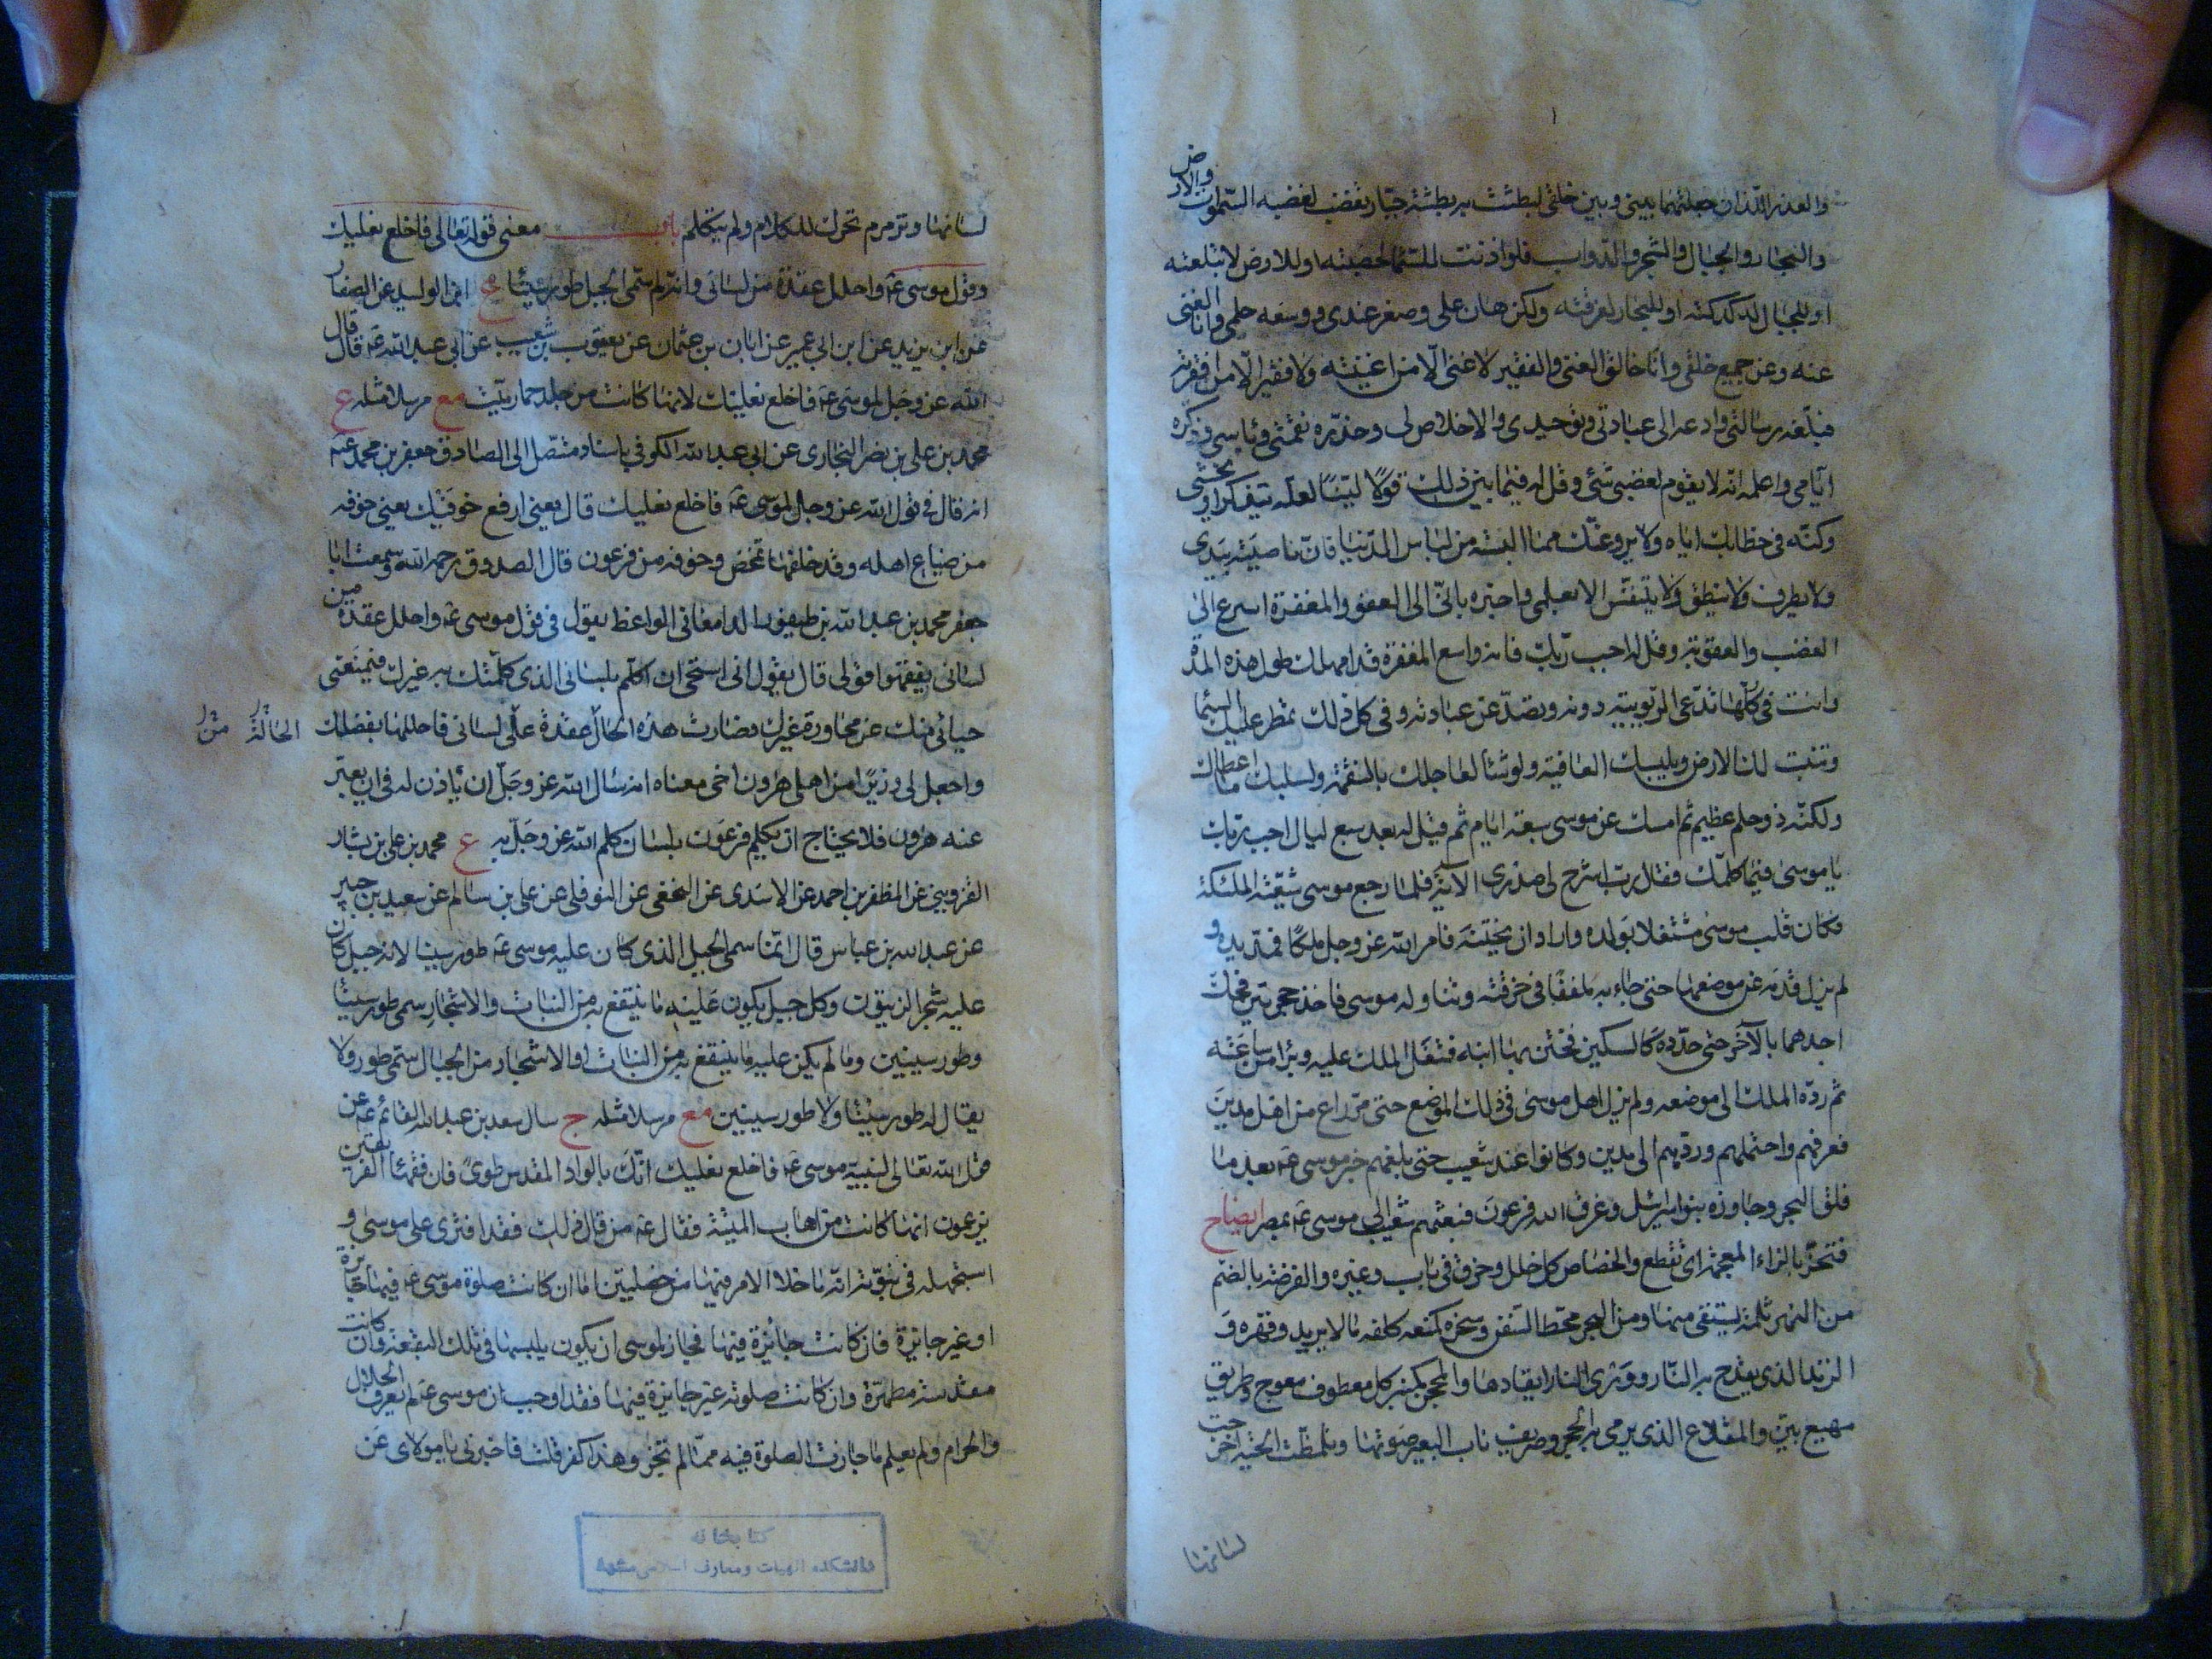 والعذر اللذان جعلتهما بيني وبين خلقي لبطشت به بطشة جبار يغضب لغضبه السموات والارض
والبحار والجبال والشجر والدواب فلو اذنت للسماء لحصبته او للارض لابتلعته
او للجبال لدكدكته او للبحار لغرقته ولكن هان علي وصغر عندي ووسعه حلمي وانا الغني
عنه وعن جميع خلقي وانا خالق الغني والفقير لا غني الا من اغنيته ولا فقير الا من افقرته
فبلغه رسالتي وادعه الى عبادتي وتوحيدي والاخلاص لي وحذره نقمتي وباسي وذكره
ايامي واعلمه انه لا يقوم لغضبي شئ وقل له فيما بين ذلك قولا لينا لعله يتذكر او يخشى
وكنه في خطابك اياه ولا يروعنك مما البسته من لباس الدنيا فان ناصيته بيدي
ولا يطرف ولا ينطق ولا يتنفس الا بعلمي واخبره باني الى العفو والمغفرة اسرع الى
الغضب والعقوبة وقل له اجب ربك فانه واسع المغفرة قد امهلك طول هذه المدة
وانت في كلها تدعي الربوبية دونه وتصد عن عبادته وفي كل ذلك تمطر عليك السما
وتنبت لك الارض ويلبسك العافية ولو شئا لعاجلك بالنقمة ولسلبك ما اعطاك
ولكنه ذو حلم عظيم ثم امسك عن موسى سبعة ايام ثم قيل له بعد سبع ليال اجب ربك
يا موسى فيما كلمك فقال رب اشرح لي صدري الاية فلما رجع موسى شيعته الملئكة
فكان قلب موسى مشتغلا بولده واراد ان يختنه فامر الله عز وجل ملكا فمد يده و
لم يزل قدمه عن موضعها حتى جاء به ملففا في خرقته وتناوله موسى فاخذ حجرين فحك
احدهما بالآخر حتى حدده كالسكين فختن بهما ابنه فتفل الملك عليه وبرا من ساعته
ثم رده الملك الى موضعه ولم يزل اهل موسى في ذلك الموضع حتى مر راع من اهل مدين
فعرفهم واحتملهم وردهم الى مدين وكانوا عند شعيب حتى بلغهم خبر موسى ع بعد ما
فلق البحر وجاوزه بنو اسرائيل وغرق الله فرعون فبعثهم شعيب الى موسى ع بمصر ايضاح
فتحز بالزاء المعجمة اي تقطع والخصاص كل خلل وخرق في باب وغيره والفرضة بالضم
من النهر ثلمة يستقى منها ومن البحر محط السفن وسخره كمنعه كلفه ما لا يريد وقهره و
الزند الذي يقدح به النار وورى النار ايقادها والمحجن كمنبر كل معطوف معوج وطريق
مهيع بين والمقلاع الذي يرمى به الحجر وصريف ناب البعير صوتها وتلمظت الحية اخرجت
لسانها
لسانها وترمرم تحرك للكلام ولم يتكلم باب معنى قوله تعالى فاخلع نعليك
وقول موسى ع واحلل عقدة من لساني وانه لم سمى الجبل طور سيناء ع ابن الوليد عن الصفار
عن ابن يزيد عن ابن ابي عمير عن ابان بن عثمان عن يعقوب بن شعيب عن ابي عبد الله ع قال قال
الله عز وجل لموسى ع فاخلع نعليك لانها كانت من جلد حمار ميت مع مرسلا مثله ع
محمد بن علي بن نصر البخاري عن ابي عبد الله الكوفي باسناد متصل الى الصادق جعفر بن محمد ع
انه قال في قول الله عز وجل لموسى ع فاخلع نعليك قال يعني ارفع خوفيك يعني خوفه
من ضياع اهله وقد خلفها تمخض وخوفه من فرعون قال الصدوق رحمه الله وسمعت ابا
جعفر محمد بن عبد الله بن طيفور الدامغاني الواعظ يقول في قول موسى ع واحلل عقدة من
لساني يفقهوا قولي قال يقول اني استحي ان اكلم بلساني الذي كلمتك به غيرك فيمنعني
حيائي منك عن محاورة غيرك فصارت هذه الحال عقدة على لساني فاحللها بفضلك الحالة
واجعل لي وزيرا من اهلي هرون اخي معناه انه سال الله عز وجل ان ياذن له في ان يعبر
عنه هرون فلا يحتاج ان يكلم فرعون بلسان كلم الله عز وجل به ع محمد بن علي بن بشار
القزويني عن المظفر بن احمد عن الاسدي عن النخعي عن النوفلي عن علي بن سالم عن سعيد بن جبير
عن عبد الله بن عباس قال انما سمى الجبل الذي كان عليه موسى ع طور سينا لانه جبل كان
عليه شجر الزيتون وكل جبل يكون عليه ما ينتفع به من النبات والاشجار سمى طور سيناء
وطور سينين وما لم يكن عليه ما ينتفع به من النبات او الاشجار من الجبال سمى طور ولا
يقال له طور سيناء ولا طور سينين مع مرسلا مثله ج سال سعد بن عبد الله القائم ع عن
قول الله تعالى لنبيه موسى ع فاخلع نعليك انك بالواد المقدس طوى فان فقهاء الفريقين
يزعمون انها كانت من اهاب الميتة فقال ع من قال ذلك فقد افترى على موسى و
استجهله في نبوته انه ما خلا الامر فيها من خصلتين اما ان كانت صلوة موسى ع فيها جائزة
او غير جايزة فان كانت جائزة فيها فجاز لموسى ان يكون يلبسها في تلك البقعة وان كانت
مقدسة مطهرة وان كانت صلوته غير جايزة فيها فقد اوجب ان موسى ع لم يعرف الحلال
والحرام ولم يعلم ما جازت الصلوة فيه مما لم تجز وهذا كفر قلت فاخبرني يا مولاي عن
كتابخانه
دانشكده الهيات ومعارف اسلامى مشهد